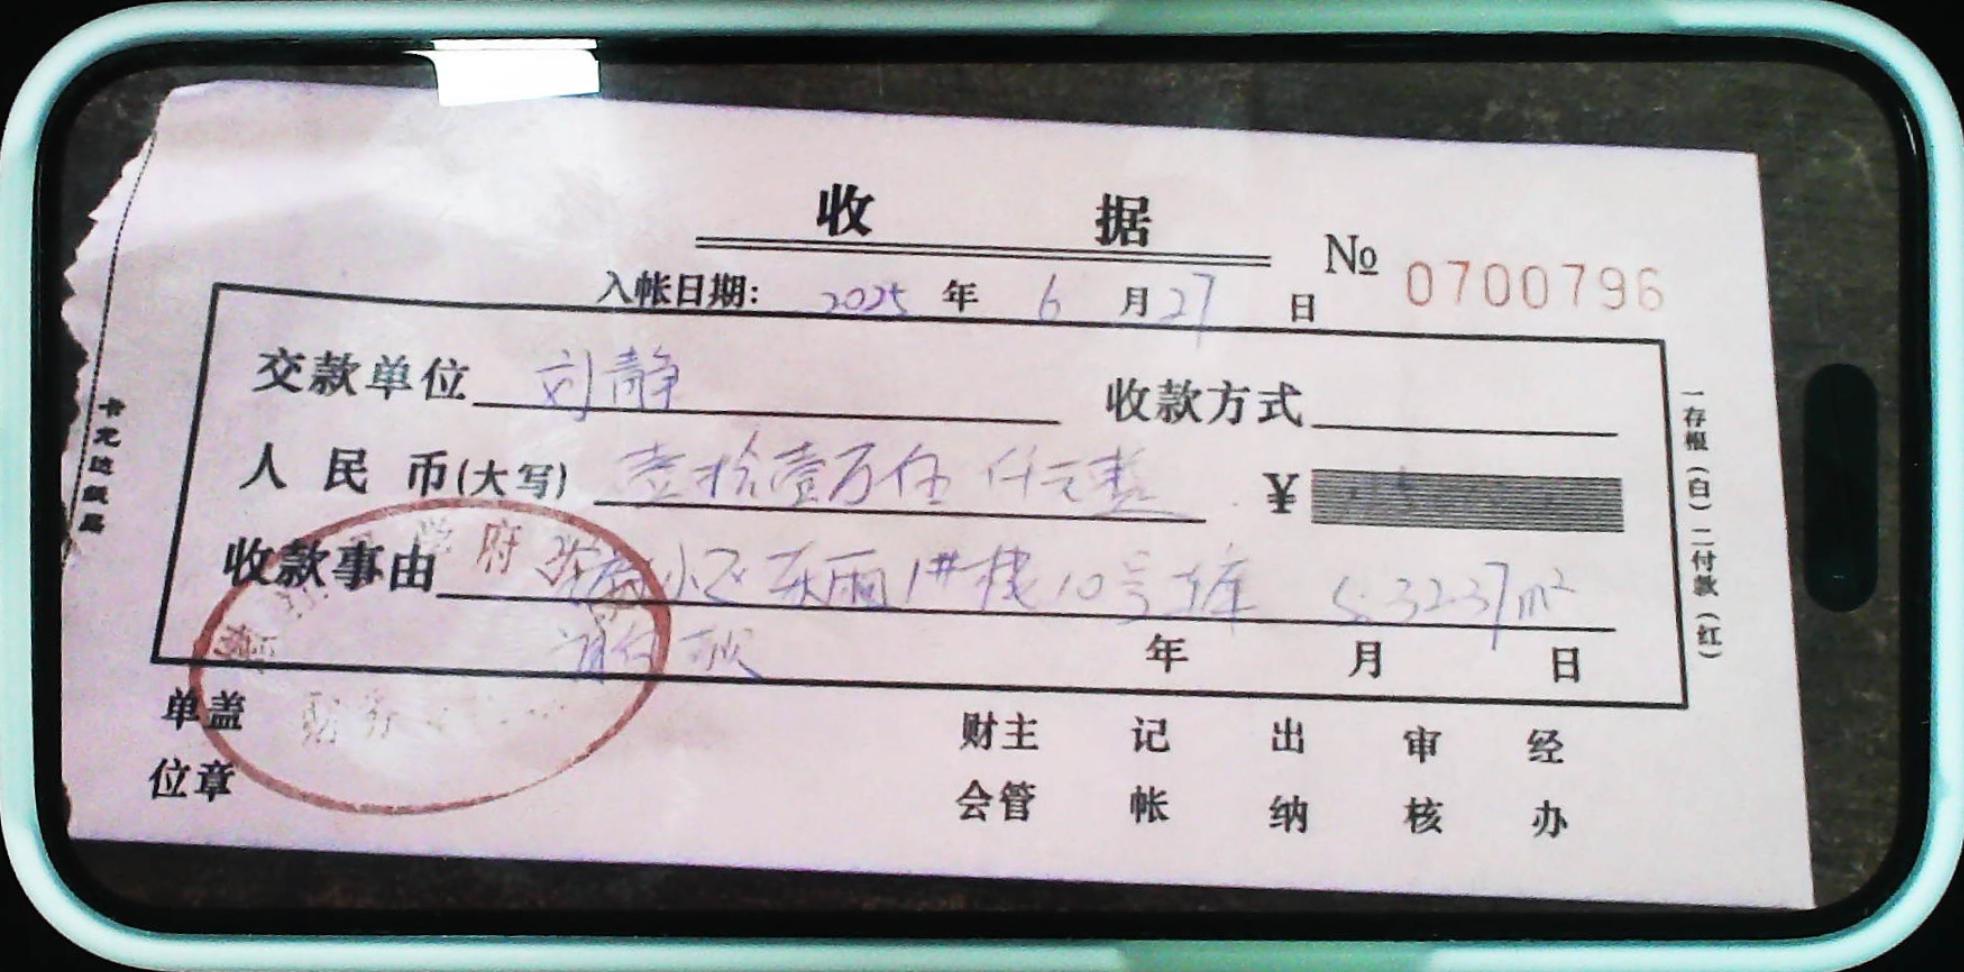 收 据
№ 0700796
入帐日期: 2025 年 6 月 27 日
交款单位 刘静 收款方式
人民币(大写) 壹拾壹万伍仟元整 ¥
收款事由 小区东 1#楼10号 5.3237m²
年 月 日
单位盖章
财会主管 记帐 出纳 审核 经办
一存根(白)二付款(红)
学府
财务